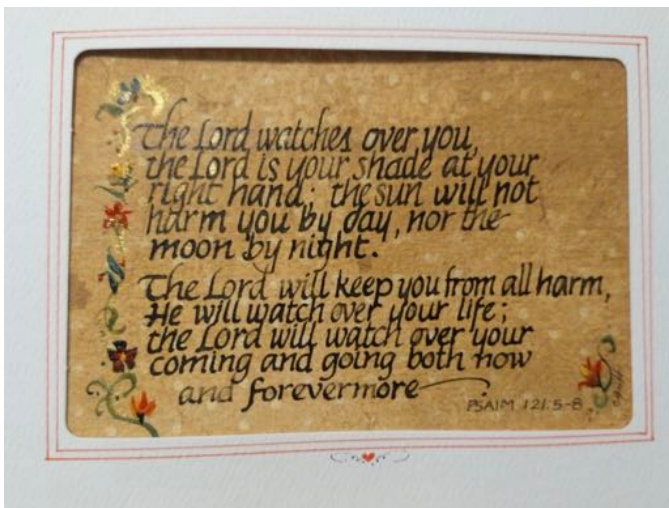 The Lord watches over you,
the Lord is your shade at your
right hand; the sun will not
harm you by day, nor the
moon by night.
The Lord will keep you from all harm,
He will watch over your life;
the Lord will watch over your
coming and going both now
and forevermore
PSALM 121:5-8